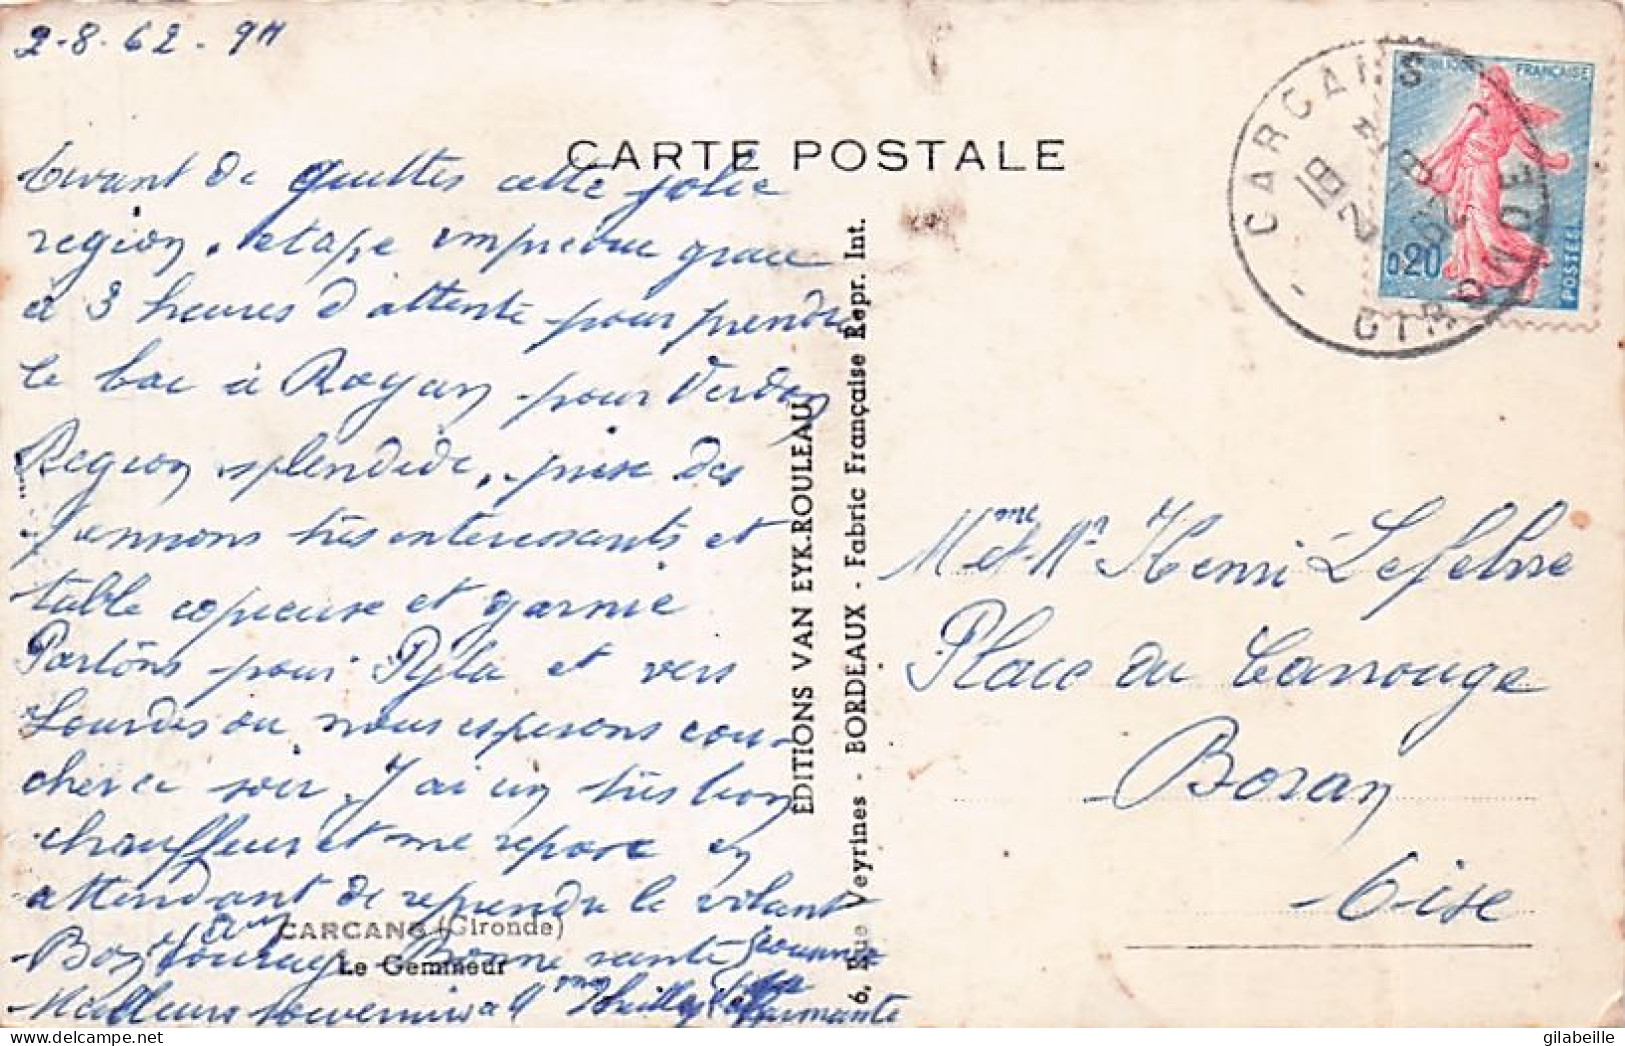 2-8-62. 9H
CARTE POSTALE
avant de quitter cette jolie
région, étape imprévue grace
à 3 heures d'attente pour prendre
le bac à Royan pour Verdon
Région splendide, prise des
pennons très interessants et
table copieuse et garnie
Partons pour Pyla et vers
Lourdes ou nous esperons cou-
cher ce soir. J'ai un très bon
chauffeur et me repose en
attendant de reprendre le volant
Bon courage Bonne santé
Meilleurs souvenirs à Mme
CARCANS (Gironde)
Le Gemmeur
EDITIONS VAN EYK-ROULEAU
6, Rue Veyrines - BORDEAUX - Fabric Française Repr. Int.
CARCANS
GIRONDE
18 H
2 - 8
REPUBLIQUE FRANÇAISE
0,20
POSTES
Mme et Mr Henri Lefebvre
Place du Carrouge
Boran
Oise
gilabeille